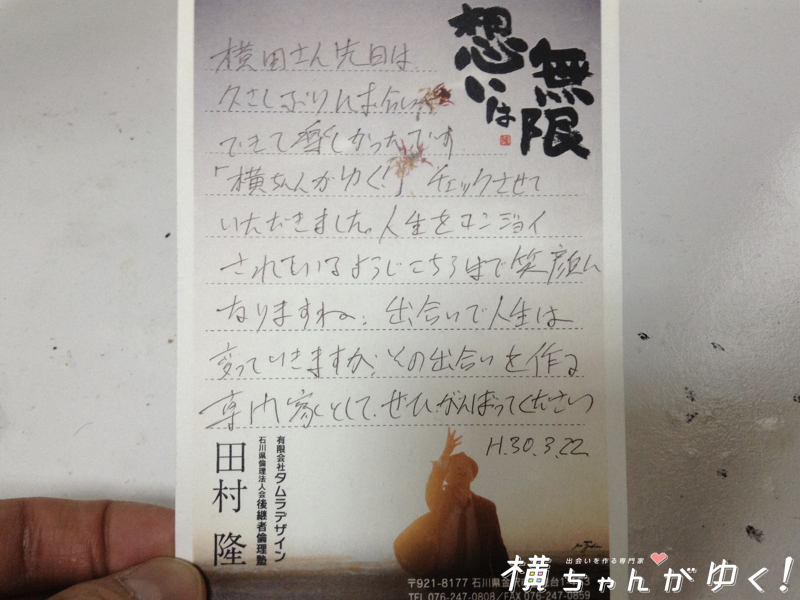 無限
想いは
横田さん先日は
久さしぶりにお会い
できて嬉しかったです
「横ちゃんがゆく!」チェックさせて
いただきました。人生をエンジョイ
されているようじこちらまで笑顔に
なりますね。出会いで人生は
変っていきますが、その出会いを作る
専門家として、ぜひがんばってください
H.30.3.22
有限会社タムラデザイン
石川県倫理法人会後継者倫理塾
田村 隆
〒921-8177 石川県金沢
TEL 076-247-0808/FAX 076-247-0859
出会いを作る専門家
横ちゃんがゆく!